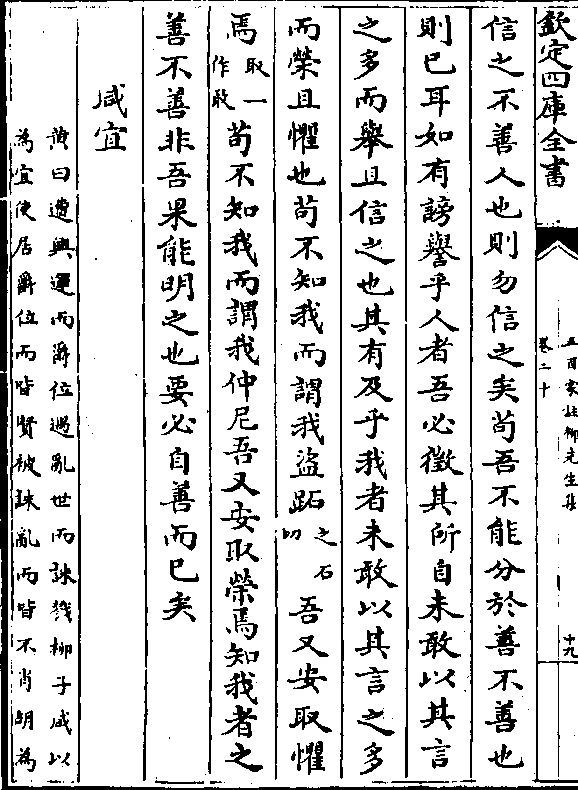 欽定四庫全書
五百家註柳先生集
卷二十
十九
信之不善人也則勿信之矣苟吾不能分於善不善也
則已耳如有謗譽乎人者吾必徵其所自未敢以其言
之多而舉且信之也其有及乎我者未敢以其言之多
而榮且懼也苟不知我而謂我盜跖之石切吾又安取懼
焉取一作敢苟不知我而謂我仲尼吾又安取榮焉知我者之
善不善非吾果能明之也要必自善而已矣
咸宜
黄曰遭興運而爵位遇亂世而誅戮柳子咸以
為宜使居爵位而皆賢被誅亂而皆不肖胡為